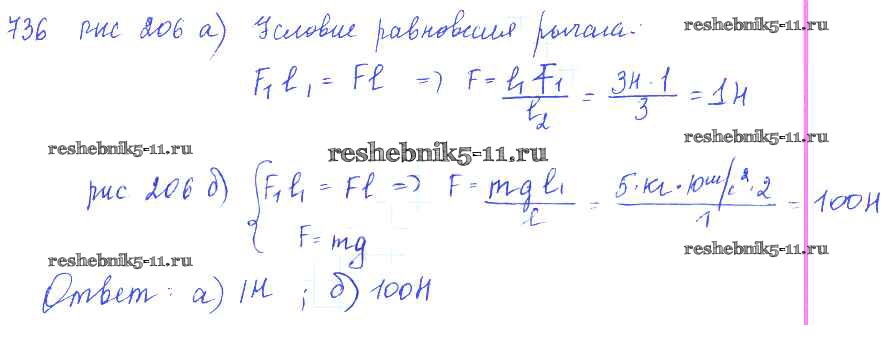 736 рис 206 а) Условие равновесия рычага:
reshebnik5-11.ru
F₁ l₁ = Fl => F = l₁ F₁ / l₂ = 3Н · 1 / 3 = 1Н
reshebnik5-11.ru
reshebnik5-11.ru
reshebnik5-11.ru
рис 206 б) { F₁ l₁ = Fl => F = mg l₁ / l = 5 · кг · 10 м/с² · 2 / 1 = 100Н
F = mg
reshebnik5-11.ru
reshebnik5-11.ru
Ответ: а) 1Н ; б) 100Н